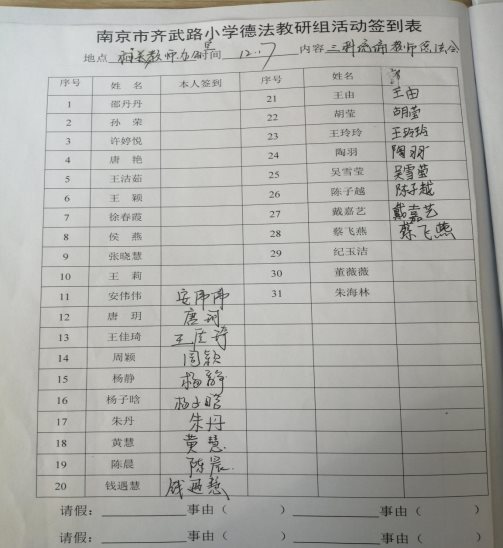 南京市齐武路小学德法教研组活动签到表
地点 时间 12.7 内容
序号 姓名 本人签到 序号 姓名
1 邵丹丹 21 王由 王由
2 孙荣 22 胡莹 胡莹
3 许婷悦 23 王玲玲 王玲玲
4 唐艳 24 陶羽 陶羽
5 王洁茹 25 吴雪莹 吴雪莹
6 王颖 26 陈子越 陈子越
7 徐春霞 27 戴嘉艺 戴嘉艺
8 侯燕 28 蔡飞燕 蔡飞燕
9 张晓慧 29 纪玉洁
10 王莉 30 董薇薇
11 安伟伟 安伟伟 31 朱海林
12 唐玥 唐玥
13 王佳琦 王佳琦
14 周颖 周颖
15 杨静 杨静
16 杨子晗 杨子晗
17 朱丹 朱丹
18 黄慧 黄慧
19 陈晨 陈晨
20 钱遇慧 钱遇慧
请假：________ 事由（ ）________ 事由（ ）
请假：________ 事由（ ）________ 事由（ ）